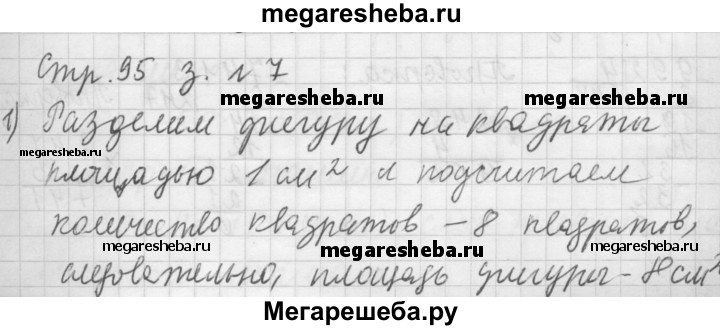 megaresheba.ru
Стр. 95 з. №7
megaresheba.ru
megaresheba.ru
1) Разделим фигуру на квадраты
megaresheba.ru
megaresheba.ru
площадью 1 см² и подсчитаем
количество квадратов – 8 квадратов,
megaresheba.ru
megaresheba.ru
следовательно, площадь фигуры – 8 см²
Мегарешеба.ру